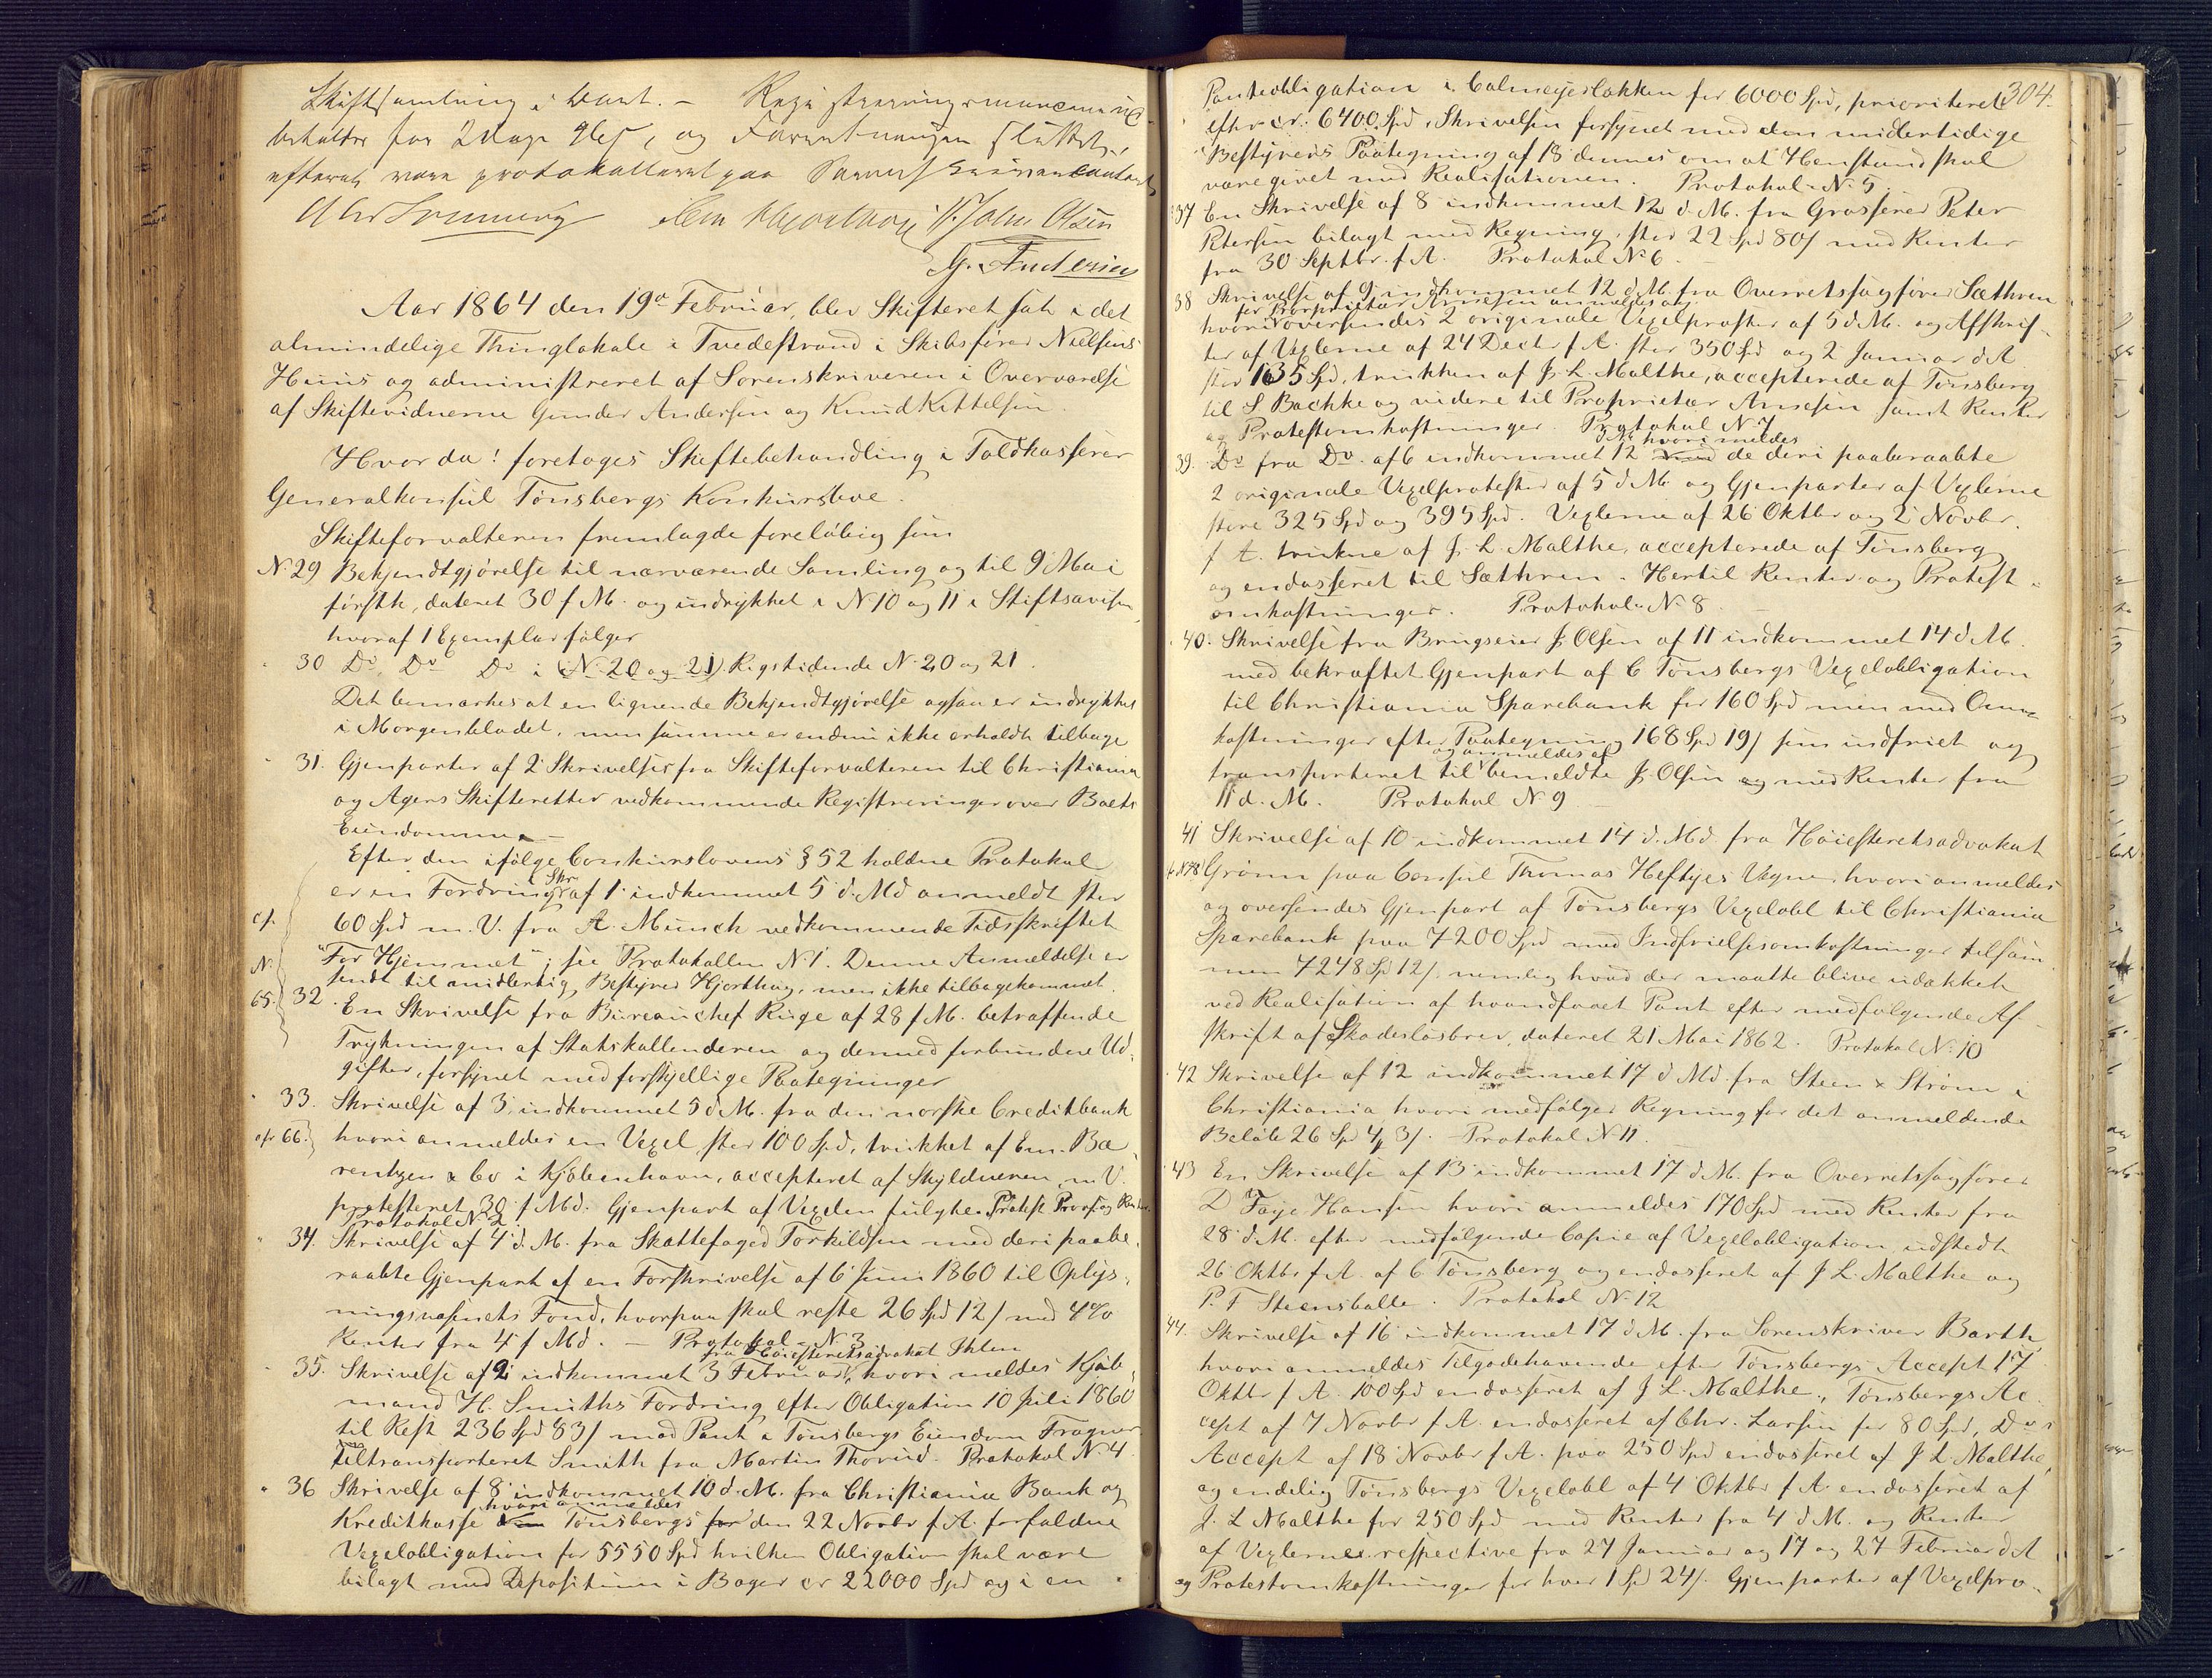 Skiftesamling i Vant. – Registreringsmændene
beholdes for 2 Dage hver, og Forretningen sluttet,
efterat være protokolleret paa
Chr Lemmerig Hjorthoy P. John Olsen
G. Andersen
Aar 1864 den 19de Februar, blev Skifteret sat i det
almindelige Thinglokale i Tvedestrand i Skibsfører Nielsens
Huus og administreret af Sorenskriveren i Overværelse
af Skiftevidnerne Gunder Andersen og Knud Kittelsen.
Hvor da! foretoges Skiftebehandling i Toldkasserer
Generalkonsul Tønsbergs Konkursboe.
Skifteforvalteren fremlagde foreløbig som
N. 29 Bekjendtgjørelse til nærværende Samling og til 9 Mai
førstk, dateret 30 f M. og indrykket i N 10 og 11 i Stiftsavisen
hvoraf 1 Exemplar følger
30 Do, Do Do i (N. 20 og 21) Rigstidende N. 20 og 21.
Det bemærkes at en lignende Bekjendtgjørelse ogsaa er indrykket
i Morgenbladet, men samme er endnu ikke erholdt tilbage
31. Gjenparter af 2 Skrivelser fra Skifteforvalteren til Christiania
og Agers Skifteretter vedkommende Registreringer over Boets
Eiendomme. –
Efter den ifølge Conkurslovens § 52 holdne Protokol
er en Fordring Skr. af 1 indkommet 5 d. Md anmeldt stor
cf. 60 Spd m. V. fra A. Munch vedkommende Tidsskriftet
N. "For Hjemmet"; see Protokollen N 1. Denne Anmeldelse er
sendt til midlertig Bestyrer Hjorthoy, men ikke tilbagekommet.
65. 32. En Skrivelse fra Bureauchef Ruge af 28 f M. betræffende
Trykningen af Statskallenderen og dermed forbundne Ud-
gifter, forsynet med forskjellige Paategninger
33. Skrivelse af 3, indkommet 5 d M. fra den norske Creditbank
cfr 66. hvori anmeldes en Vexel stor 100 Spd, trukket af Em. Bæ
rentzen & Co i Kjøbenhavn, accepteret af Skyldneren m. V.
protesteret 30 f Md. Gjenpart af Vexelen fulgte. Protest Provs. og Renter.
Protokol N. 2
34. Skrivelse af 4 d. M. fra Skattefoged Torkildsen med deri paabe-
raabte Gjenpart af en Forskrivelse af 6 Juni 1860 til Oplys-
ningsvæsenets Fond, hvorpaa skal reste 26 Spd 12 / med 4%
Renter fra 4 f Md. – Protokol – N. 3
fra Høiesteretsadvokat Ihlen
35. Skrivelse af 2 indkommet 3 Februar, hvori meldes Kjøb-
mand H. Smiths Fordring efter Obligation 10 Juli 1860
til Rest 236 Spd 83 / mod Pant i Tønsbergs Eiendom Frogner
Tiltransporteret Smith fra Martin Thorud. Protokol N. 4
36 Skrivelse af 8 indkommet 10 d. M. fra Christiania Bank og
hvori anmeldes
Kreditkasse Tønsbergs for den 22 Novbr f A. forfaldne
Vexelobligation for 5550 Spd hvilken Obligation skal være
bilagt med Depositum i Bøger cr 22000 Spd og i en
304.
Panteobligation i Calmeyerløkken for 6000 Spd, prioriteret
efter cr. 6400 Spd, Skrivelsen forsynet med den midlertidige
Bestyrers Paategning af 13 dennes om at Henstand skal
være givet med Realisationen. Protokol – N. 5.
37 En Skrivelse af 8 indkommet 12 d. M. fra Grosserer Peter
Petersen bilagt med Regning, stor 22 Spd 80 / med Renter
fra 30 Septbr. f A. Protokol N. 6. –
38 Skrivelse af 9 indkommet 12 d. M. fra Overretssagfører Sæthren
for Proprietær Arnesen anmeldes og
hvori oversendes 2 originale Vexelprotester af 5 d M. og Afskrif-
ter af Vexlerne af 24 Decbr f A. stor 350 Spd og 2 Januar d A
stor 165 Spd, trukken af J. L. Malthe, accepterede af Tønsberg
til S Bachke og videre til Proprietær Arnesen samt Renter
og Protestomkostninger. Protokol N. 7
d M. hvori meldes
39. Do fra Do af 6 indkommet 12 de deri paaberaabte
2 originale Vexelprotester af 5 d M. og Gjenparter af Vexlerne
store 325 Spd og 395 Spd. Vexlerne af 26 Oktbr og 2 Novbr.
f A. trukne af J. L. Malthe, accepterede af Tønsberg
og endosseret til Sæthren. Hertil Renter og Protest-
omkostninger. Protokol N. 8
40. Skrivelse fra Brugseier J. Olsen af 11 indkommet 14 d M.
med bekræftet Gjenpart af C Tønsbergs Vexelobligation
til Christiania Sparebank for 160 Spd men med Om-
kostninger efter Paategning 168 Spd 19 / som indfriet og
og anmeldes af
transporteret til bemeldte J. Olsen og med Renter fra
11 d. M. Protokol N. 9 –
41 Skrivelse af 10 indkommet 14 d. Md. fra Høiesteretsadvokat
Grønn paa Consul Thomas Heftyes Vegne, hvori anmeldes
og oversendes Gjenpart af Tønsbergs Vexelobl til Christiania
Sparebank paa 7200 Spd med Indfrielsesomkostninger tilsam
men 7248 Spd 12 /. nemlig hvad der maatte blive udækket
ved Realisation af haandfaaet Pant efter medfølgende Af
skrift af Skadesløsbrev, dateret 21 Mai 1862. Protokol N. 10
42 Skrivelse af 12 indkommet 17 d Md. fra Steen & Strøm i
Christiania hvori medfølger Regning for det anmeldende
Beløb 26 Sp 4 3 /. – Protokol N 11.
43 En Skrivelse af 13 indkommet 17 d. M. fra Overretssagfører
D Faye Hansen hvori anmeldes 170 Spd med Renter fra
28 d. M. efter medfølgende Copie af Vexelobligation, udstedt
26 Oktbr f A. af C Tønsberg og endosseret af J L. Malthe og
P. F Steensballe. Protokol N. 12
44. Skrivelse af 16 indkommet 17 d M. fra Sorenskriver Barth,
hvori anmeldes Tilgodehavende efter Tønsbergs Accept 17
Oktbr f A. 100 Spd endosseret af J L. Malthe., Tønsbergs Ac
cept af 7 Novbr f A. endosseret af Chr. Larsen for 80 Spd, Dos
Accept af 18 Novbr f A. paa 250 Spd endosseret af J L Malthe,
og endelig Tønsbergs Vexelobl af 4 Oktbr f A endosseret af
J. L Malthe for 250 Spd med Renter fra 4 d M. og Renter
af Vexlerne respective fra 27 Januar og 17 og 27 Februar d A
og Protestomkostninger for hver 1 Spd 24 /. Gjenparter af Vexelpro-